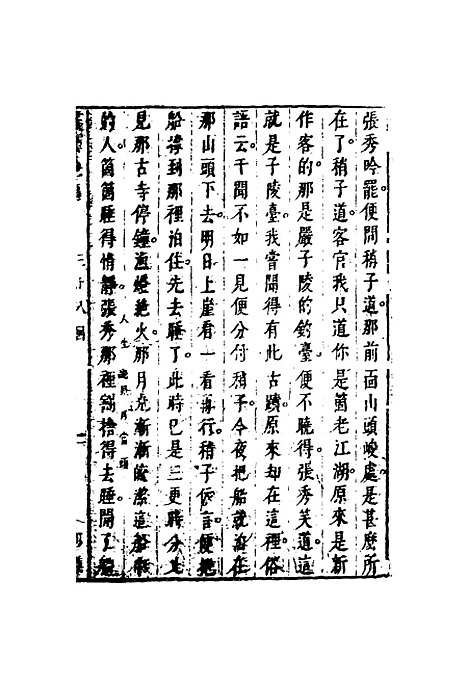 張秀吟罷便問稍子道那前面山頭峻處是甚麽所
在了稍子道客官我只道你是箇老江湖原來是新
作客的那是嚴子陵的釣臺便不曉得張秀笑道這
就是子陵臺我嘗聞得有此古蹟原來却在這裡俗
語云千聞不如一見便分付稍子今夜把船就泊在
那山頭下去明日上崖看一看再行稍子依言便把
船撐到那裡泊住先去睡了此時已是三更時分
見那古寺停鐘漁燈絶火那月亮漸漸皎潔這船
的人箇箇睡得情靜張秀那裡割捨得去睡開了船